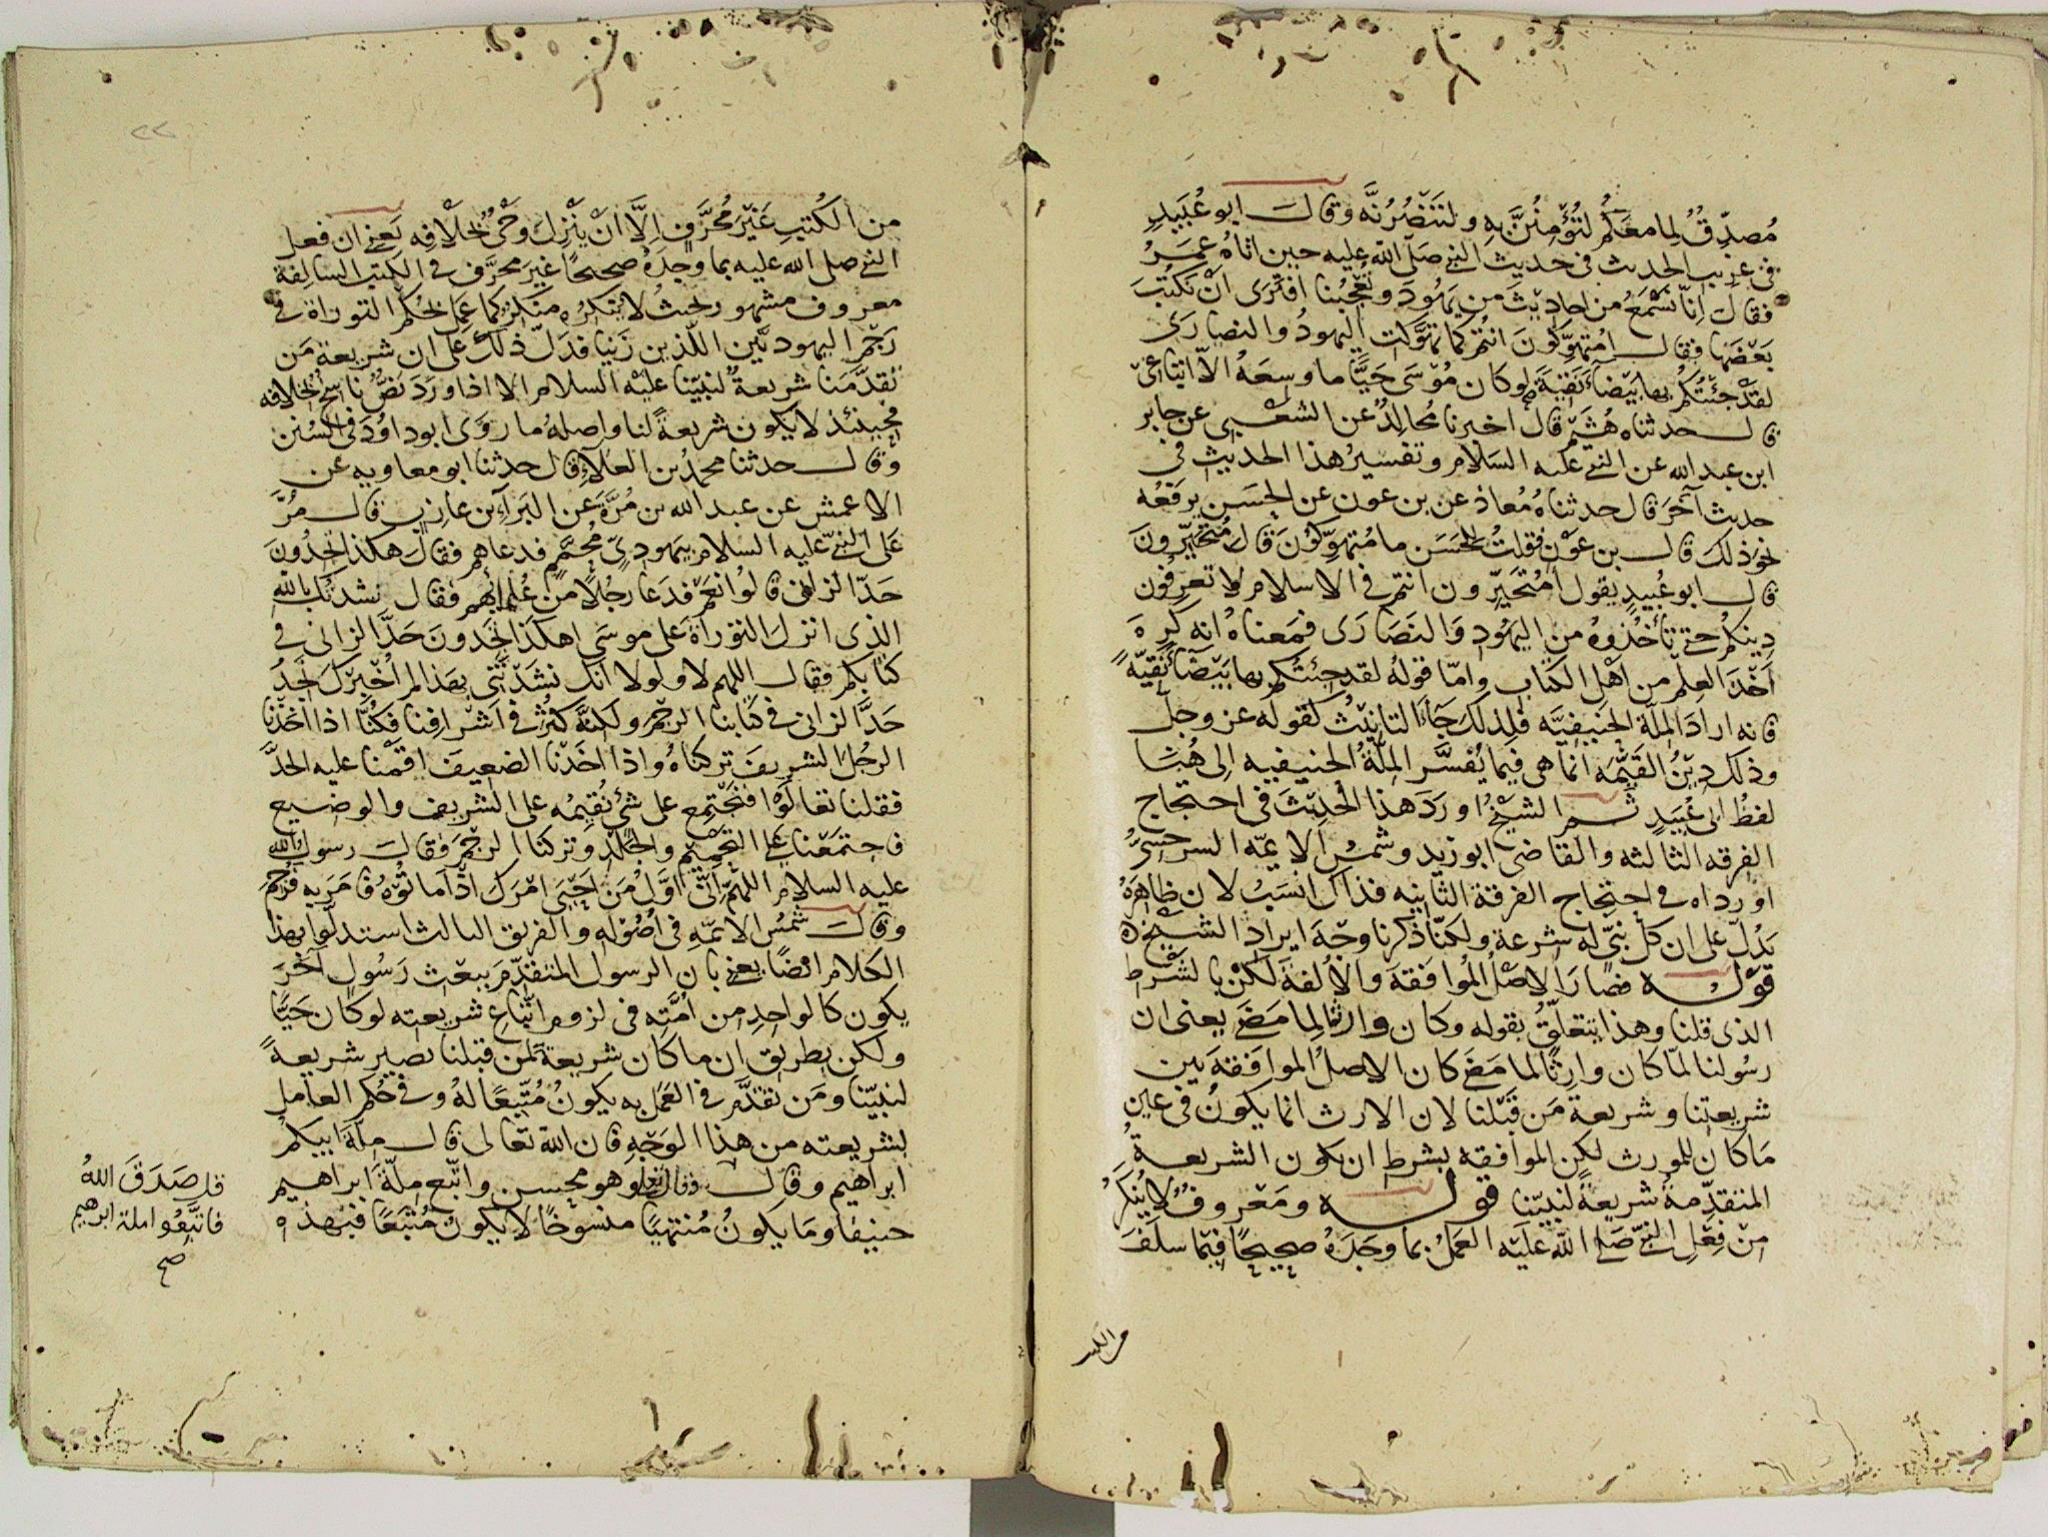 مُصدِّقٌ لِما معكُم لتُؤمِنُنَّ بهِ ولتَنصُرُنَّه وقالَ ابو عُبَيدٍ
فى غريب الحديث فى حديث النبى صلّى الله عليه حين اتاهُ عمَرُ
فقالَ اِنّا نَسْمَعُ من احاديثَ من يَهُودَ وتُعْجِبُنا افتَرَى اَنْ نكتُبَ
بَعْضَها فقالَ امُتهوِّكُونَ انتُم كما تهوَّكت اليهودُ والنصارَى
لقدْ جئتُكُم بها بَيْضاءَ نَقِيَّةً ولوكان مُوسَى حَيًّا ما وسِعَهُ الّا اتباعى
قال حدثناه هُشَيمٌ قال اخبرنا مُجالِدٌ عن الشعْبى عن جابر
ابن عبدالله عن النبى عليه السلام وتفسيرُ هذا الحديث فى
حديث آخَرَ قال حدثناهُ مُعاذ عن بن عون عن الحسَنِ يرفَعُه
نحوَ ذلك قال بن عَوْنٍ فقلتُ للحسَن ما مُتهوِّكُونَ قال مُتحَيِّرونَ
قال ابو عُبيدٍ يقول امُتَحَيِّرون انتم فى الاسلام لا تعرفُون
دِينكُم حتى تأخُذُوهُ من اليَهُودِ وَالنصَارَى فمَعناهُ انه كَرِهَ
اَخْذَ العِلْم من اَهْلِ الكتاب وامّا قولهُ لقد جئتُكم بها بَيْضَآءَ نقيّةً
فانه ارادَ المِلّةَ الحنيفيَّه فلِذلك جَاءَ التانيثُ كقوله عز وجلّ
وذلك دِيْنُ القَيِّمَه انما هى فيما يُفسَّر المِلّةُ الحنيفيه الى هُنَا
لفظُ ابى عُبَيدٍ ثُم الشَيْخُ اورَدَ هذا الحديْثَ فى احتجاج
الفرقه الثالثه والقاضى ابوزيد وشمسُ الايمّه السرخسىُّ
اورداه فى احتجاج الفرقة الثانيه فذاك انسَبُ لان ظاهِرَهُ
يَدُلّ على ان كلّ نبىّ له شرعة ولكنّا ذكرنا وجْهَ ايراد الشيْخ
قوله فصَارَ الاصْلُ المُوافقةَ والالفةَ لكنْ بالشرط
الذى قلنا وهذا يتعلّقُ بقوله وكان وارثًا لِما مَضَى يعنى ان
رسُولنا لمّا كان وارثًا لما مَضَى كان الاصلُ الموافقةَ بين
شريعتنا وشريعة مَن قَبْلنا لان الارث انما يكونُ فى عين
مَا كان للمورث لكن الموافقه بشرط ان يكون الشريعةُ
المتقدِّمةُ شريعةً لنبيّنا قوله ومَعْروفٌ لا يُنكَرُ
مِنْ فِعْلِ النبىّ صَلى اللّه علَيْه العمَلُ بما وجَدَهُ صحِيحًا فيْما سلَفَ
من الكتب
من الكُتبِ غَيْرَ مُحَرَّفٍ اِلَّا اَنْ يَنْزِلَ وَحْىٌ بخلافه يَعنى ان فعل
النبى صلى الله عليه بما وجدَهُ صحيحًا غيرَ محرَّف فى الكتب السالِفة
معروف مشهور بحيثُ لا يُنكِرُه منكِرٌ كما عَمِلَ بحُكم التوراة فى
رَجْمِ اليهوديَّين اللّذين زَنَيا فدَلّ ذلك على ان شريعة مَن
تقدَّمَنا شريعةٌ لنبيّنا عليْه السلام الا اذا ورَدَ نصٌّ ناسخٌ بخلافه
فحينئذ لا يكون شريعةً لنا واصلهُ ما روَى ابوداوُد فى السُنن
وقال حدثنا محمدُ بن العَلاءِ قال حدثنا ابو معاويه عن
الاعمش عن عبدالله بن مُرَّةَ عن البَرآءِ بن عازِبٍ قال مُرَّ
عَلَى النبىّ عليه السلام بيَهودىٍّ مُحَمَّمٍ فدعاهم فقالَ هكذا تجدُونَ
حَدّ الزانى قالُوا نعَمْ فدَعا رجُلًا منْ عُلَمائهم فقال نشدتُك بالله
الذى انزل التوْراة على موسَى اهكَذا تجدونَ حَدَّ الزانى فى
كتابكم فقال اللهم لا ولولا انك نشَدْتَنى بهذا لم اُخْبرْك نَجدُ
حَدَّ الزانى فى كتابنا الرجْمَ ولكنَّه كثُرَ فى اَشْرافِنا فكُنَّا اذا اخَذْنا
الرجُلَ الشريفَ تركناهُ واذا اخَذْنا الضعيفَ اقَمْنا عليه الحدَّ
فقلنا تعالَوْا فنجْتمِع على شىْءٍ نُقِيمُه على الشريف والوضيع
فاجتمَعْنا على التحْمِيْمِ والجَلْد وتركنا الرجْمَ فقالَ رسول الله
عليه السلام اللهُمَّ اِنّى اوّلُ مَن اَحْيَى امْرَك اذْ اَماتُوْهُ فامَرَ به فرُجِمَ
وقالَ شمْسُ الائمّهِ فى اُصُوْلِهِ والفريق الثالث استدلّوا بهذا
الكلام ايْضًا يعنى بان الرسول المتقدِّمَ ببعْث رَسُولٍ آخَرَ
يكون كالواحِدِ من اُمَّته فى لزوم اتّباع شريعته لوكان حَيًّا
ولكن بطريق ان ماكان شريعةً لمن قبلنا يصير شريعةً
لنبيّنا ومَن تقدَّم فى العَمَل به يكونُ مُتّبِعًا لهُ وفى حُكم العامل
بشريعته من هذا الوَجْهِ فان اللّه تعالى قال مِلّةَ ابيكُم
ابراهيم وقال تعالى وهو محسن واتّبع مِلّة ابراهيم
حنيفا ومَا يكونُ مُنتهيًا منسوخًا لا يكون مُتّبَعًا فبهذه
قل صَدَقَ اللّهُ
فاتّبِعُوا ملة ابرهيم
صح